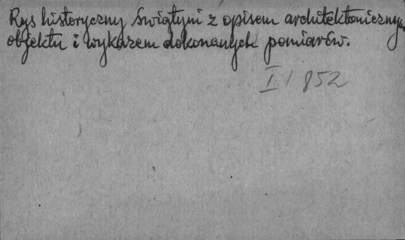 Rys historyczny świątyni z opisem architektonicznym
objektu i wykazem dokonanych pomiarów.
I/852